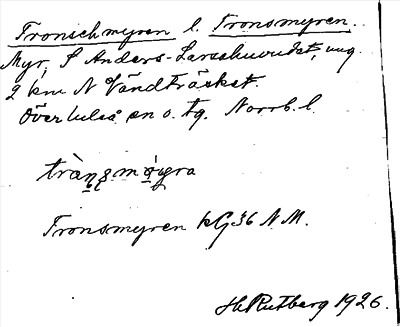 Tronschmyren l. Tronsmyren.
Myr, S Anders-Larshuvudet, ung
2 km N Vändträsket.
Överluleå sn o. tg. Norrb. l.
Tronsmyren kG36 N.M.
H. Rutberg 1926.